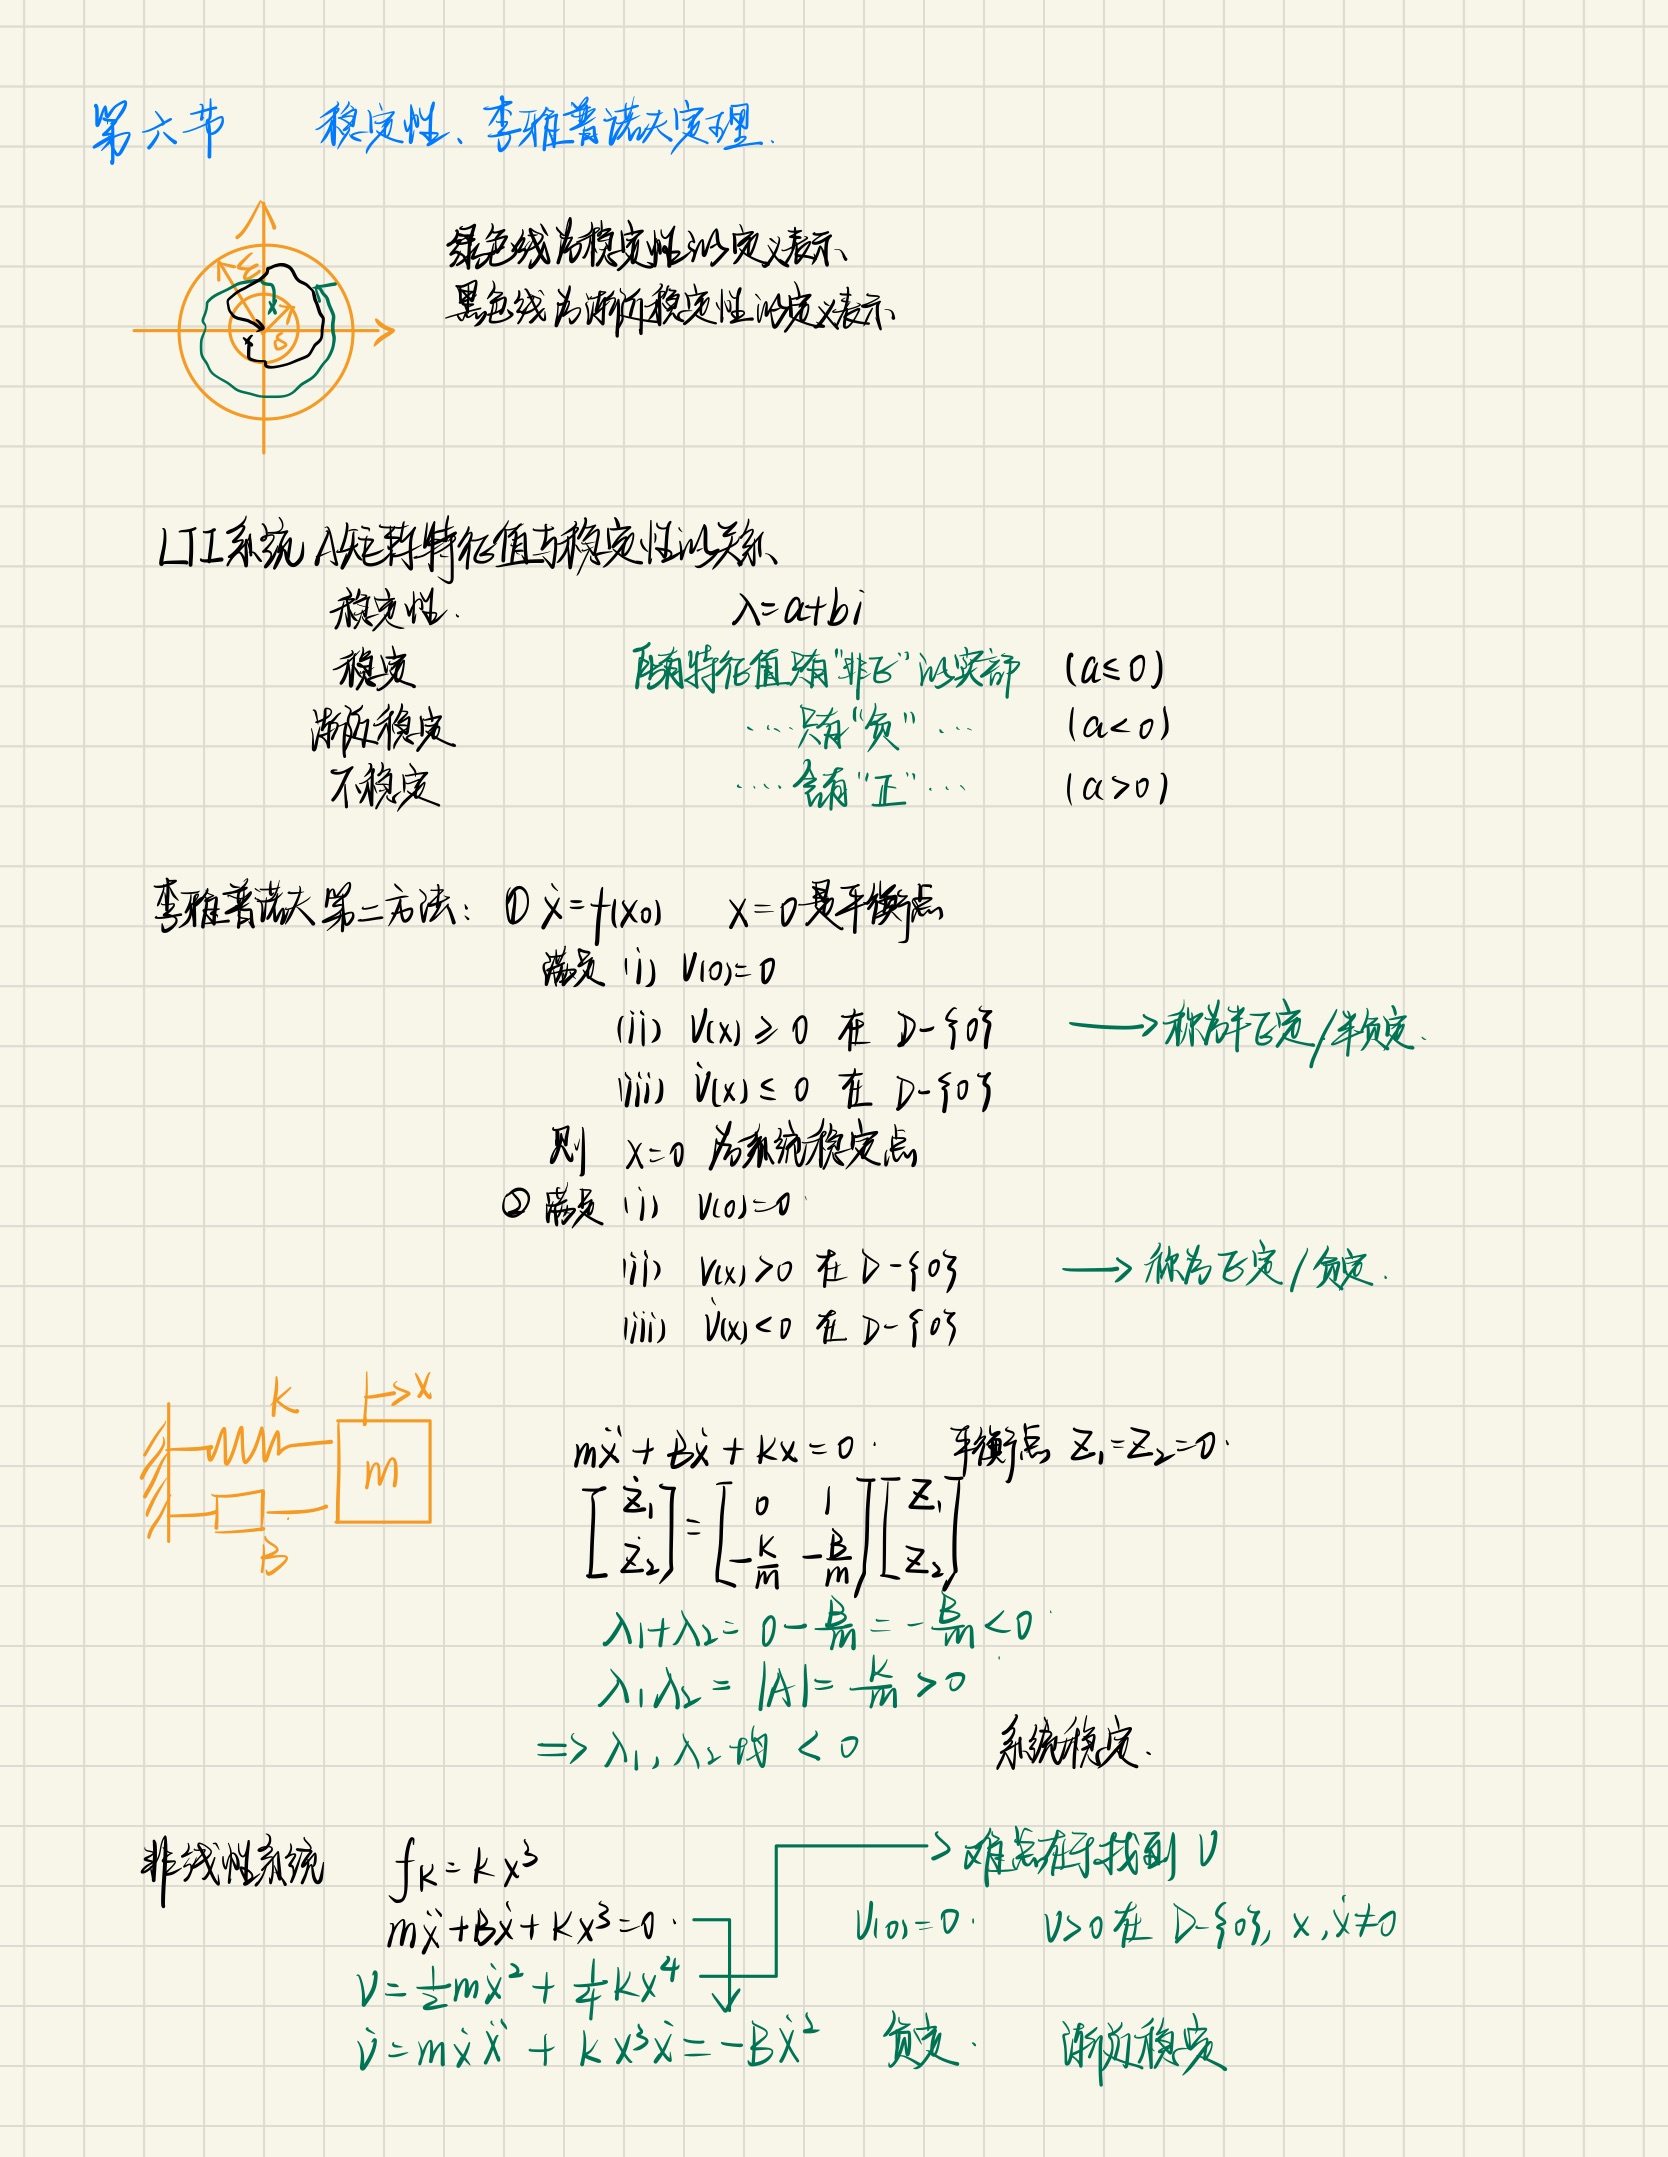 第六节 稳定性、李雅普诺夫定理.
ε
x
x
δ
绿色线为稳定性的定义表示、
黑色线为渐近稳定性的定义表示、
LTI系统A矩阵特征值与稳定性的关系、
稳定性. λ=a+bi
稳定 所有特征值只有“非正”的实部 (a≤0)
渐近稳定 ....只有“负”... (a<0)
不稳定 ....含有“正”... (a>0)
李雅普诺夫第二方法: ① ẋ=f(x₀) x=0是平衡点
满足 (i) V(0)=0
(ii) V(x)≥0 在 D-{0} → 称为半正定/半负定.
(iii) V̇(x)≤0 在 D-{0}
则 x=0 为系统稳定点
② 满足 (i) V(0)=0
(ii) V(x)>0 在 D-{0} → 称为正定/负定.
(iii) V̇(x)<0 在 D-{0}
K
→x
m
B
mẍ+Bẋ+Kx=0. 平衡点 Z₁=Z₂=0.
[Ż₁ Ż₂] = [0 1; -K/m -B/m][Z₁ Z₂]
λ₁+λ₂=0-B/m=-B/m<0
λ₁λ₂=|A|=K/m>0
⇒λ₁,λ₂均<0 系统稳定.
非线性系统 f_K=Kx³ → 难点在于找到V
mẍ+Bẋ+Kx³=0. V(0)=0. V>0 在 D-{0}, x,ẋ≠0
V=½mẋ²+¼Kx⁴
V̇=mẋẍ+Kx³ẋ=-Bẋ² 负定. 渐近稳定